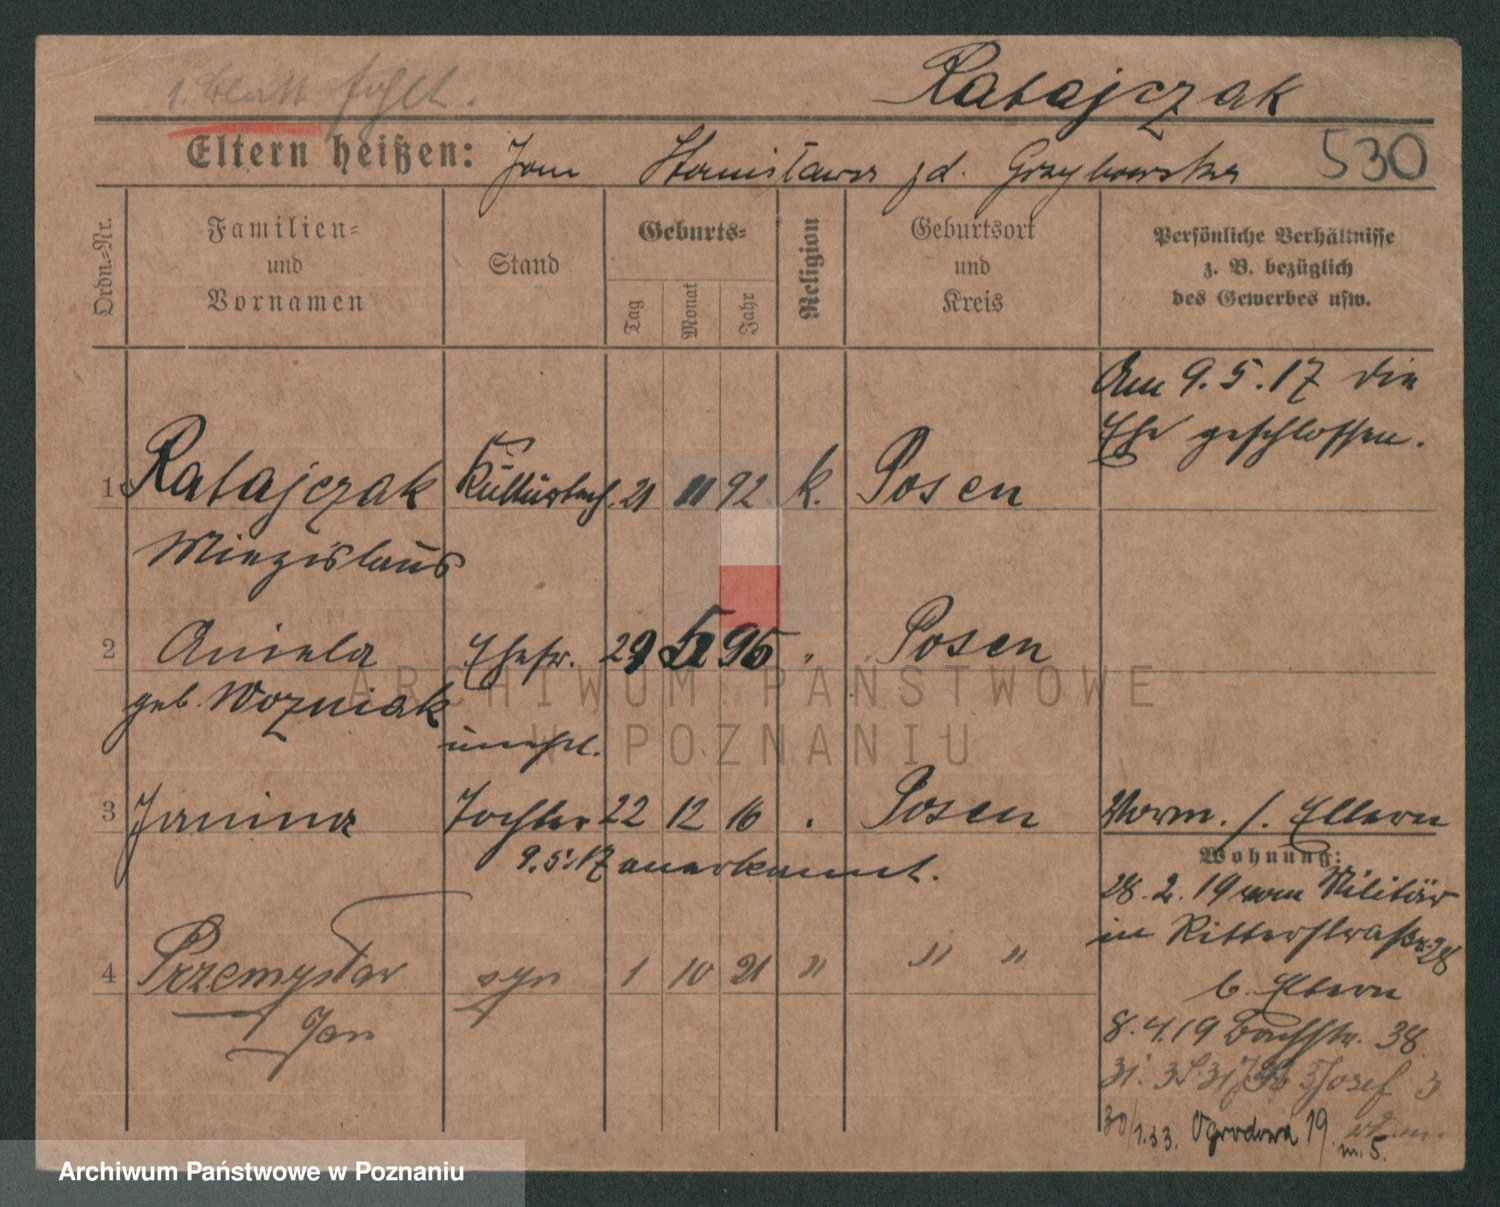 1. Blatt fehlt.
Ratajczak
Eltern heißen: Jan Stanisława zd. Grzybowska
530
Ordn.-Nr.
Familien-
und
Vornamen
Stand
Geburts-
Tag
Monat
Jahr
Religion
Geburtsort
und
Kreis
Persönliche Verhältnisse
z. B. bezüglich
des Gewerbes usw.
Am 9.5.17 die
Ehe geschlossen.
1 Ratajczak 21 11 92 k. Posen
Miezislaus
2 Aniela Ehefr. 29 5 96 " Posen
geb. Wozniak
unehl.
3 Janina Tochter 22 12 16 . Posen
9.5.17 anerkannt.
Vorm. s. Eltern
Wohnung:
28.2.19 vom Militär
in Ritterstraße 28
b. Eltern
4 Przemysław syn 1 10 21 " " "
Jan
8.4.19 Bachstr. 38
Josef 3
30/1.33. Ogrodowa 19
m. 5.
ARCHIWUM PAŃSTWOWE
W POZNANIU
Archiwum Państwowe w Poznaniu